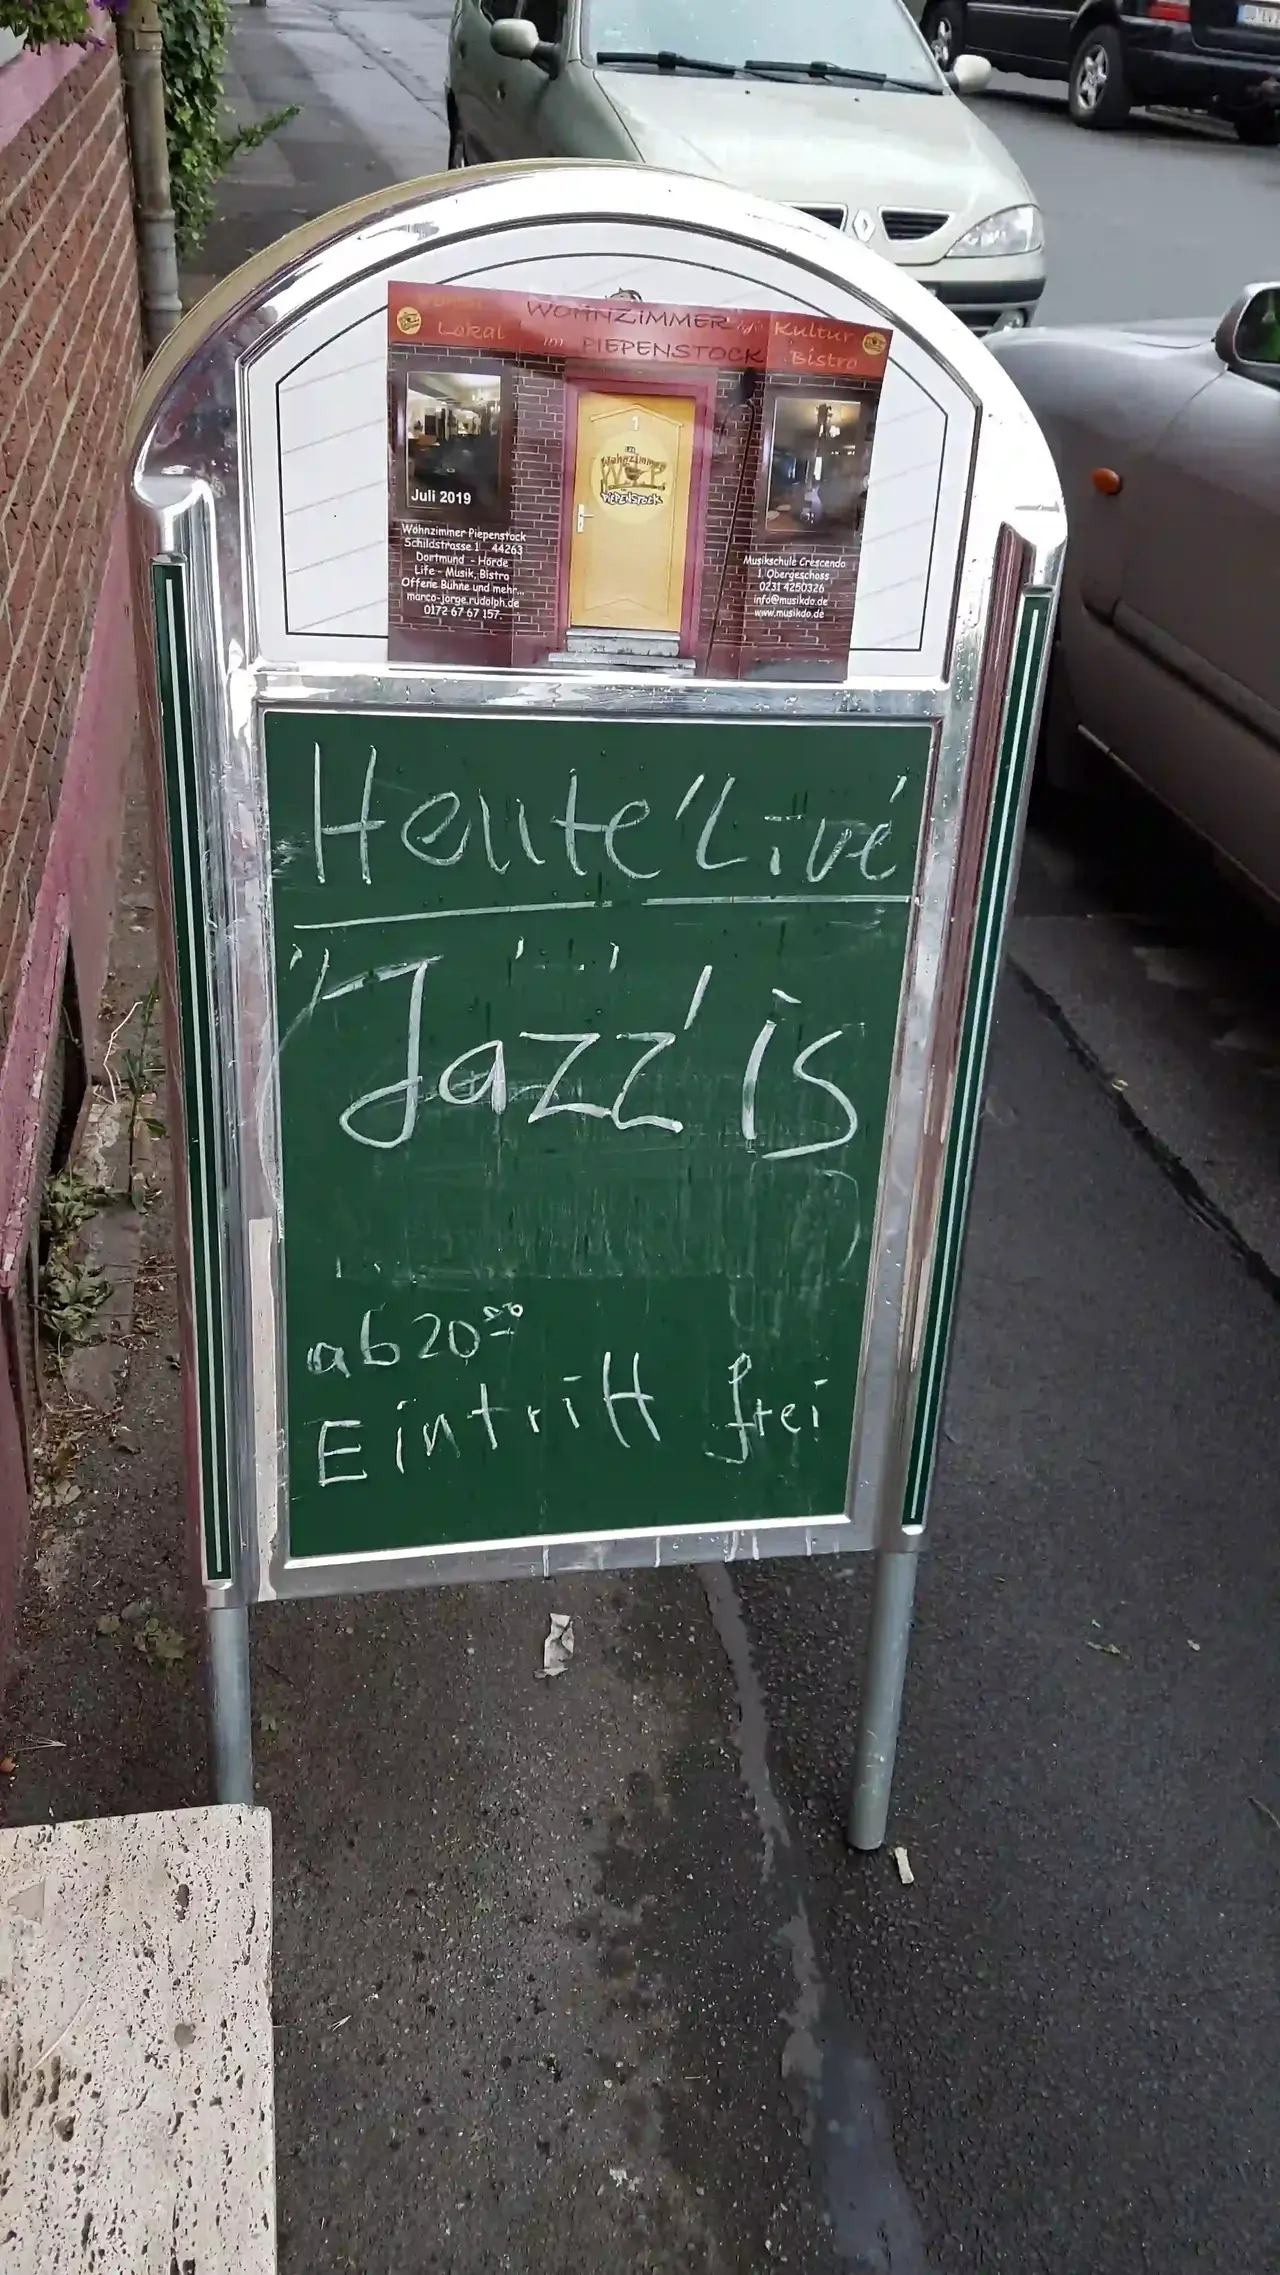 WOHNZIMMER
im PIEPENSTOCK
Lokal
Kultur
Bistro
1
Wohnzimmer
PIEPENSTOCK
Juli 2019
Wohnzimmer Piepenstock
Schildstrasse 1 44263
Dortmund - Hörde
Life - Musik, Bistro
Offene Bühne und mehr...
marco-jorge.rudolph.de
0172 67 67 157.
Musikschule Crescendo
1. Obergeschoss
0231 4250326
info@musikdo.de
www.musikdo.de
Heute Live
Jazz' is
ab 20⁰⁰
Eintritt frei